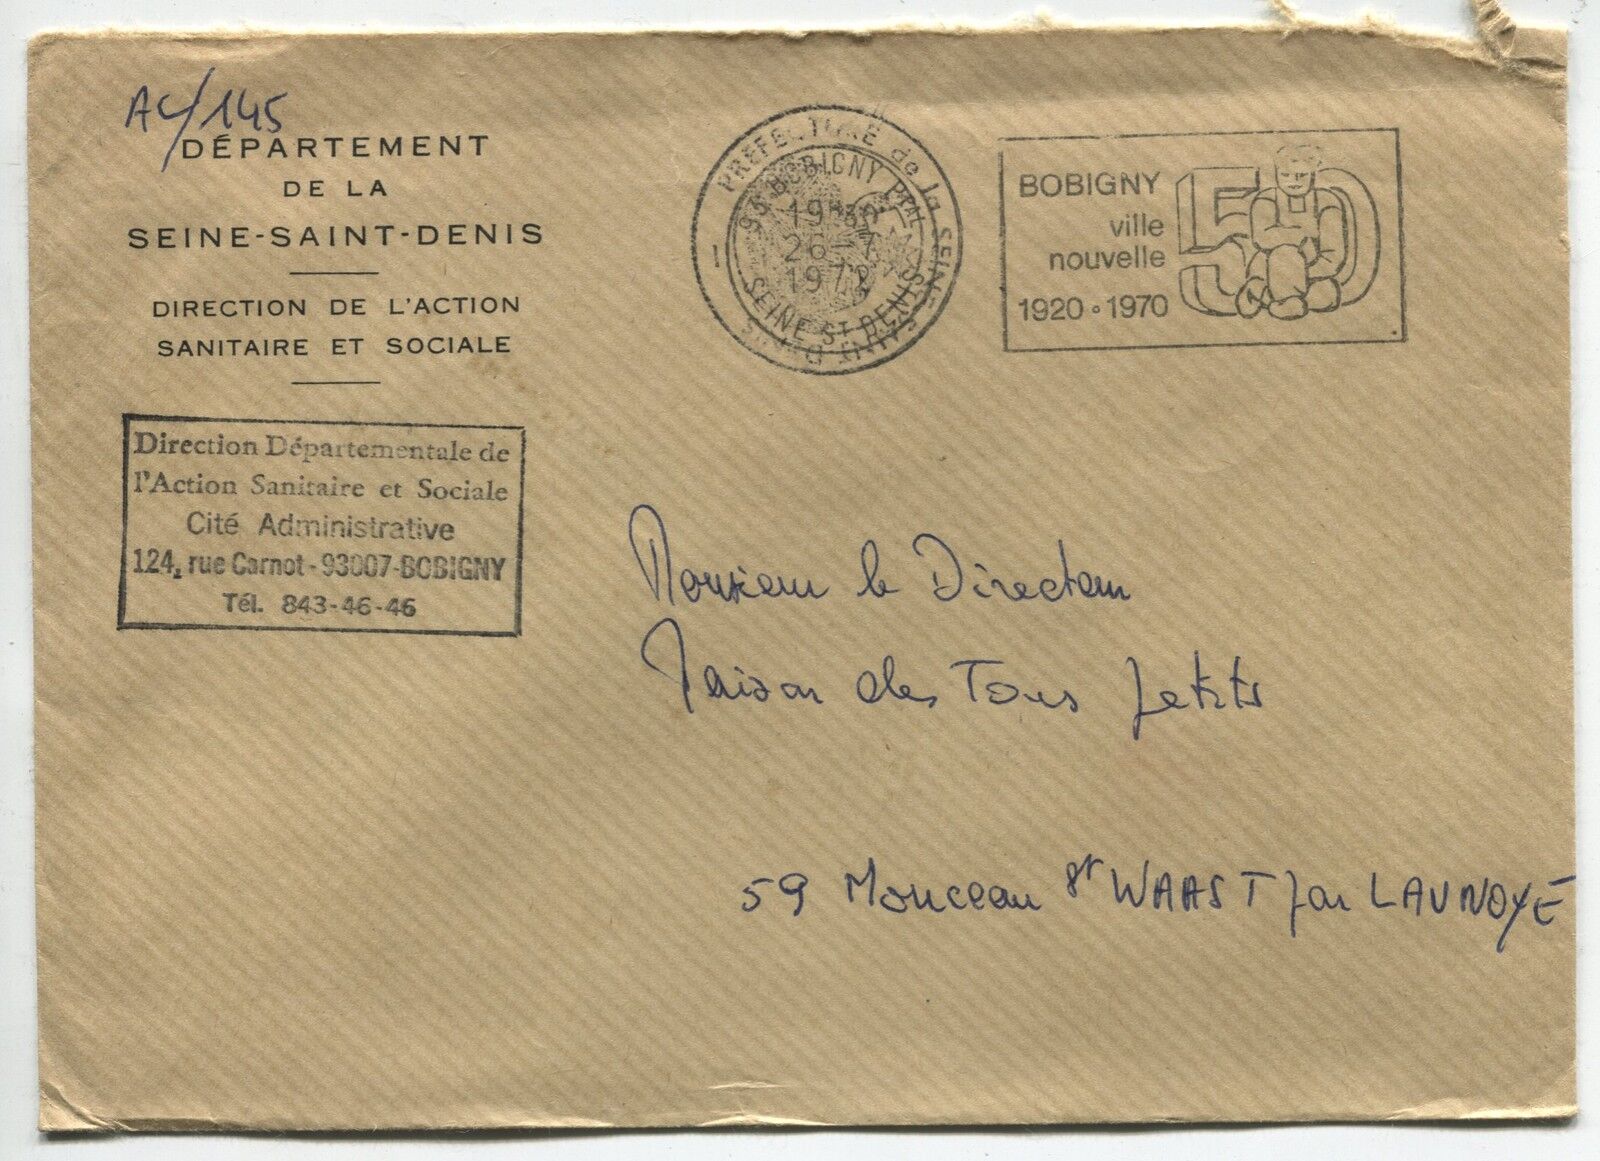 AC/145
DÉPARTEMENT
DE LA
SEINE-SAINT-DENIS
DIRECTION DE L'ACTION
SANITAIRE ET SOCIALE
Direction Départementale de
l'Action Sanitaire et Sociale
Cité Administrative
124, rue Carnot - 93007-BOBIGNY
Tél. 843-46-46
PREFECTURE de la SEINE SAINT DENIS
93 BOBIGNY PPAL
19H30
26-7
1972
SEINE ST DENIS
BOBIGNY
ville
nouvelle
1920 • 1970
50
Monsieur le Directeur
Maison des Tous petits
59 Monceau St WAAST par LAUNOYE